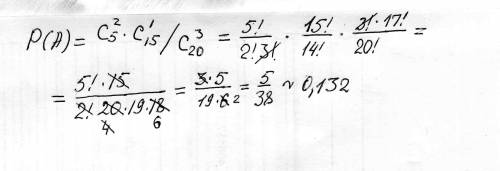 P(A) = C₅² · C₁₅¹ / C₂₀³ = 5!/(2! 3!) · 15!/14! · (3! · 17!)/20! =
= (5! · 15)/(2! 20 · 19 · 18) 4 6 = (3 · 5)/(19 · 6) 2 = 5/38 ~ 0,132